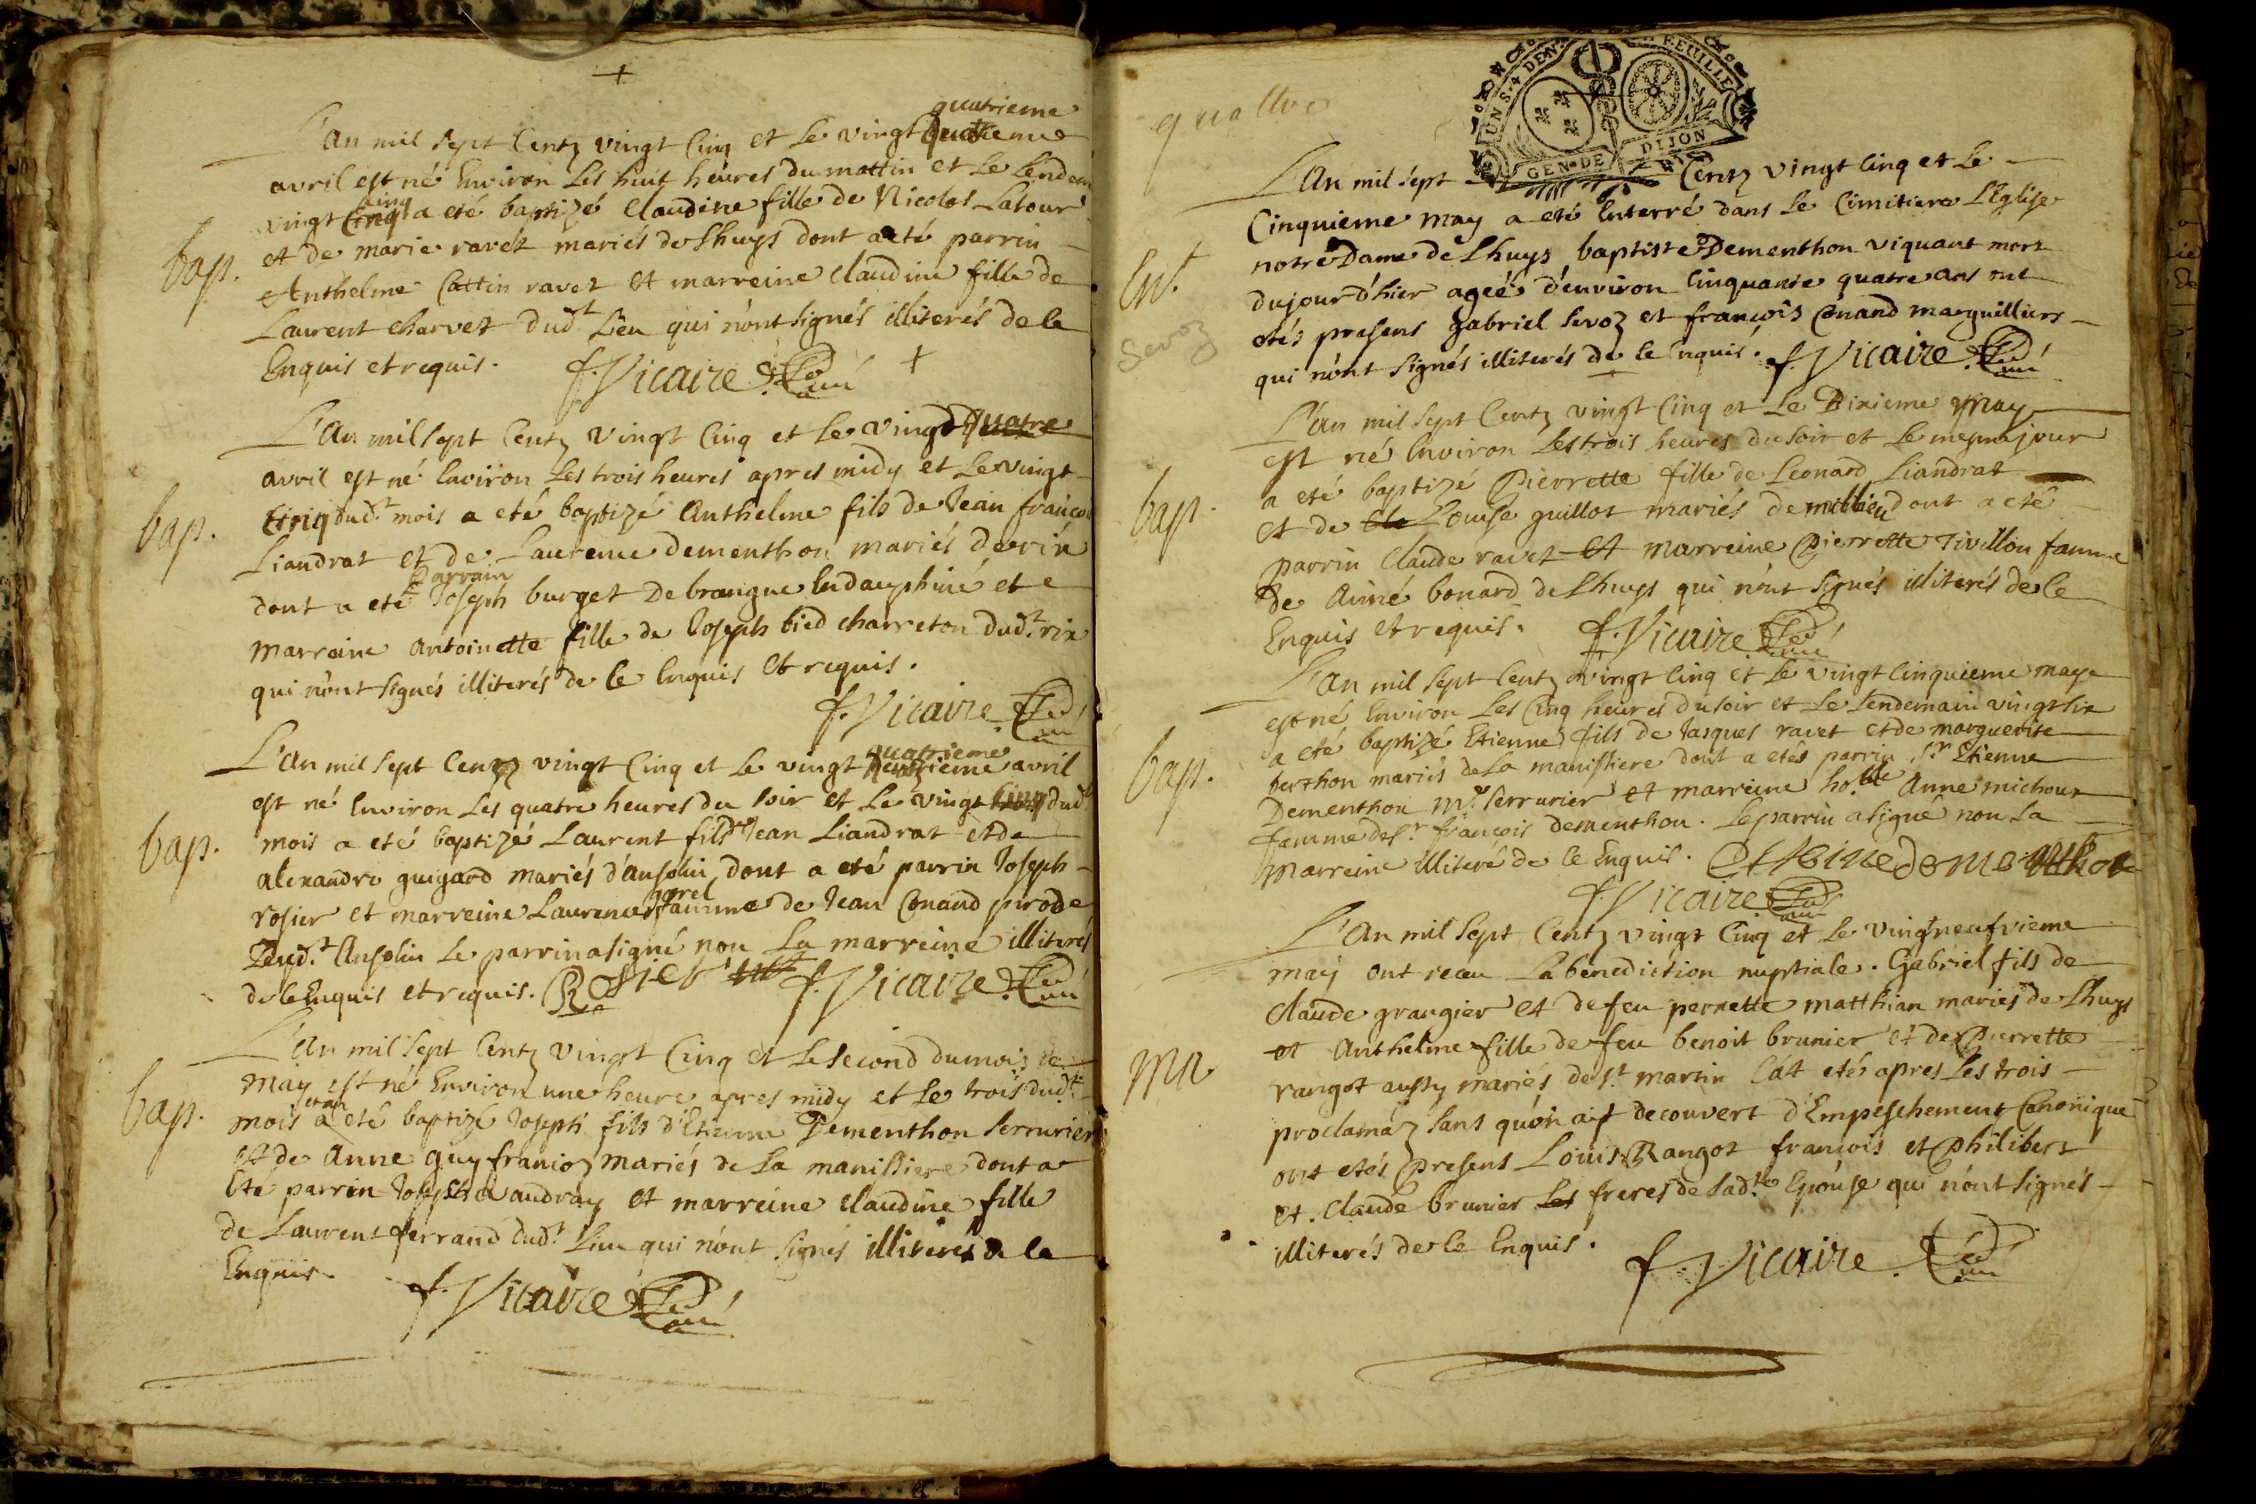 quatrieme
L'an mil sept Centz vingt Cinq et le vingt quatrieme
avril est né Environ les huit heures du mattin et le lendem
cinq
vingt Cinq a eté baptizé Claudine fille de Nicolas Latour
bap. et de marie ravet mariés de Lhuys dont a eté parrin
Anthelme Cattin ravet et marreine Claudine fille de
Laurent Charvet dud.t Lieu qui n'ont signés illiterés de ce
Enquis et requis. f. Vicaire
L'an mil sept Centz vingt Cinq et le vingt quatre
avril est né Environ les trois heures apres midy et le vingt
bap. Cinq dud.t mois a eté baptizé Anthelme fils de Jean françois
Liandrat et de Laurence dementhon mariés de rix
parrain
dont a eté Joseph burget de brangue en dauphiné et
marreine Antoinette fille de Joseph bied charreton dud.t rix
qui n'ont signés illiterés de ce Enquis et requis.
f. Vicaire
quatrieme
L'an mil sept Centz vingt Cinq et le vingt avril
est né Environ les quatre heures du soir et le vingt Cinq dud.t
bap. mois a eté baptizé Laurent fils de Jean Liandrat et de
alexandre guigard mariés d'ansolin dont a eté parrin Joseph
rosier et marreine Laurence famme de Jean Conand pirod
dud.t Ansolin le parrin a signé non la marreine illiterés
de ce Enquis et requis. Rosier f. Vicaire
L'an mil sept Centz vingt Cinq et le second du mois de
may est né Environ une heure apres midy et le trois dud.t
bap. mois a eté baptizé Joseph fils d'Etienne Dementhon serrurier
et de Anne guy francoz mariés de la manissiere dont a
Eté parrin Joseph vaudray et marreine Claudine fille
de Laurent ferrand dud.t Lieu qui n'ont signés illiterés de ce
Enquis. f. Vicaire
quattre
UN S. 4 DEN. FEUILLE
GEN. DE DIJON
L'an mil sept Centz vingt Cinq et le
Cinquieme may a eté Enterré dans le Cimitiere L'Eglise
Ent. notre Dame de Lhuys baptiste Dementhon viquant mort
du jour d'hier ageé d'environ Cinquante quatre ans ont
Sevoz
etés presens gabriel sevoz et françois Conand marguilliers
qui n'ont signés illiterés de ce Enquis. f. Vicaire
L'an mil sept Centz vingt Cinq et le Dixieme may
est né Environ les trois heures du soir et le mesme jour
bap. a eté baptizé Pierrette fille de Leonard Liandrat
et de Louise guillot mariés de millieu dont a eté
parrin Claude ravet et marreine Pierrette Tivillon famme
de Aimé bonard de Lhuys qui n'ont signés illiterés de ce
Enquis et requis. f. Vicaire
L'an mil sept Centz vingt Cinq et le vingt Cinquieme may
est né Environ les Cinq heures du soir et le lendemain vingt six
a eté baptizé Etienne fils de Jasques ravet et de marguerite
bap. berthon mariés de la manissiere dont a etés parrin s.r Etienne
Dementhon m.e serrurier et marreine ho.ble Anne michoux
famme de s.r françois dementhon. le parrin a signé non la
marreine illiteré de ce Enquis. Etteine dementhon
f. Vicaire
L'an mil sept Centz vingt Cinq et le vingt neufvieme
may ont receu la benediction nuptiale. Gabriel fils de
Claude grangier et de feu pernette matthian mariés de Lhuys
et Anthelme fille de feu benoit brunier et de Pierrette
Ma rangot aussy mariés de s.t martin C'a't etés apres les trois
proclamaz sans qu'on ait decouvert d'Empeschement Canonique
ont etés presens Louis Rangot françois et Philibert
et Claude brunier freres de lad.te Epouse qui n'ont signés
illiterés de ce Enquis.
f. Vicaire